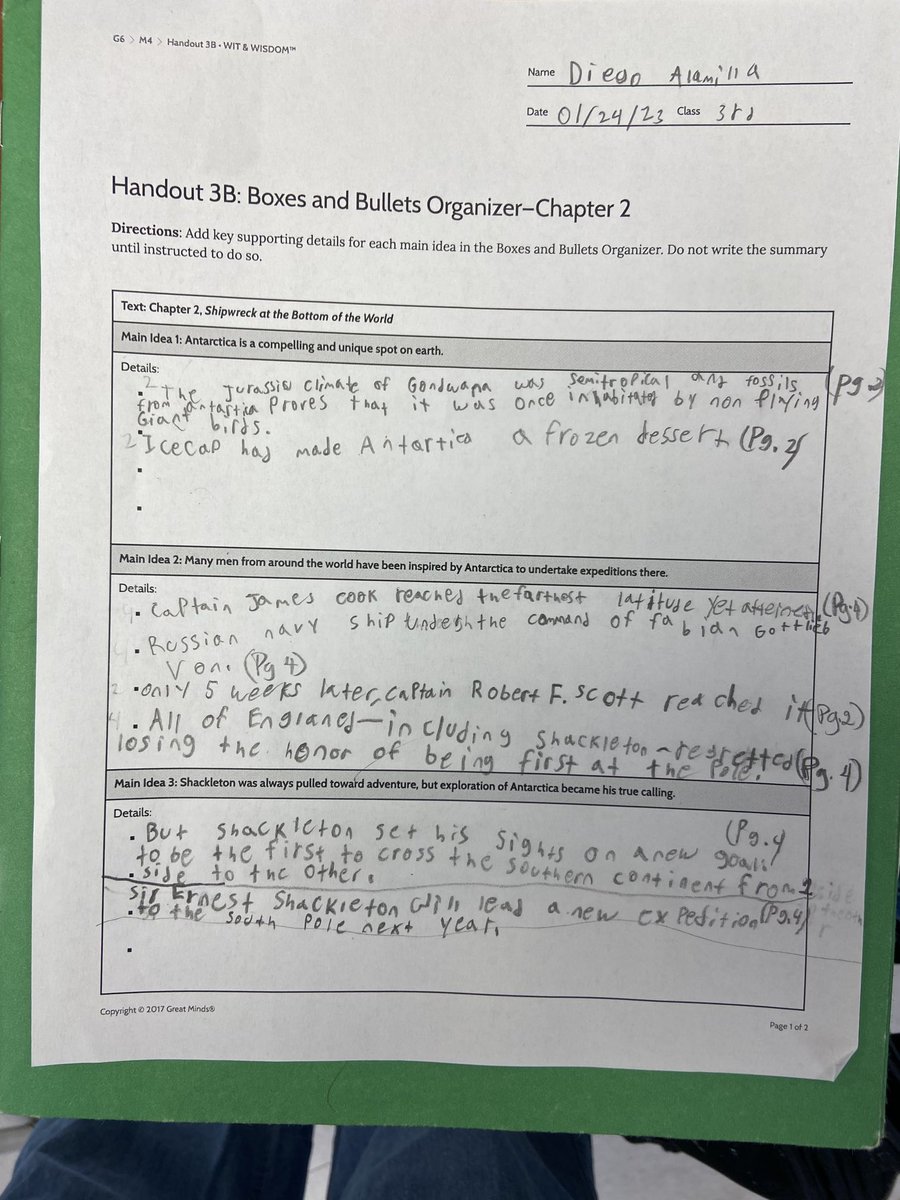 G6 > M4 > Handout 3B • WIT & WISDOM™
Name Diego Alamilla
Date 01/24/23 Class 3rd
Handout 3B: Boxes and Bullets Organizer–Chapter 2
Directions: Add key supporting details for each main idea in the Boxes and Bullets Organizer. Do not write the summary
until instructed to do so.
Text: Chapter 2, Shipwreck at the Bottom of the World
Main Idea 1: Antarctica is a compelling and unique spot on earth.
Details:
2 The Jurassic climate of Gondwana was semitropical and fossils (Pg 2)
from antartica Proves that it was once inhabitated by non flying
Giant birds.
2 Icecap has made Antartica a frozen dessert (Pg. 2)
Main Idea 2: Many men from around the world have been inspired by Antarctica to undertake expeditions there.
Details:
• Captain James cook reached the farthest latitude yet (Pg.4)
• Russian navy ship under the command of fabian Gottlieb
Von. (Pg 4)
2 • only 5 weeks later, captain Robert F. scott reached it (Pg2)
4 • All of England — including Shackleton — regretted (Pg. 4)
losing the honor of being first at the Pole.
Main Idea 3: Shackleton was always pulled toward adventure, but exploration of Antarctica became his true calling.
Details:
• But Shackleton set his sights on a new goal: (Pg.4
to be the first to cross the southern continent from 1
• side to the other.
Sir Ernest Shackleton will lead a new expedition (Pg.4)
• to the South Pole next year.
Copyright © 2017 Great Minds®
Page 1 of 2